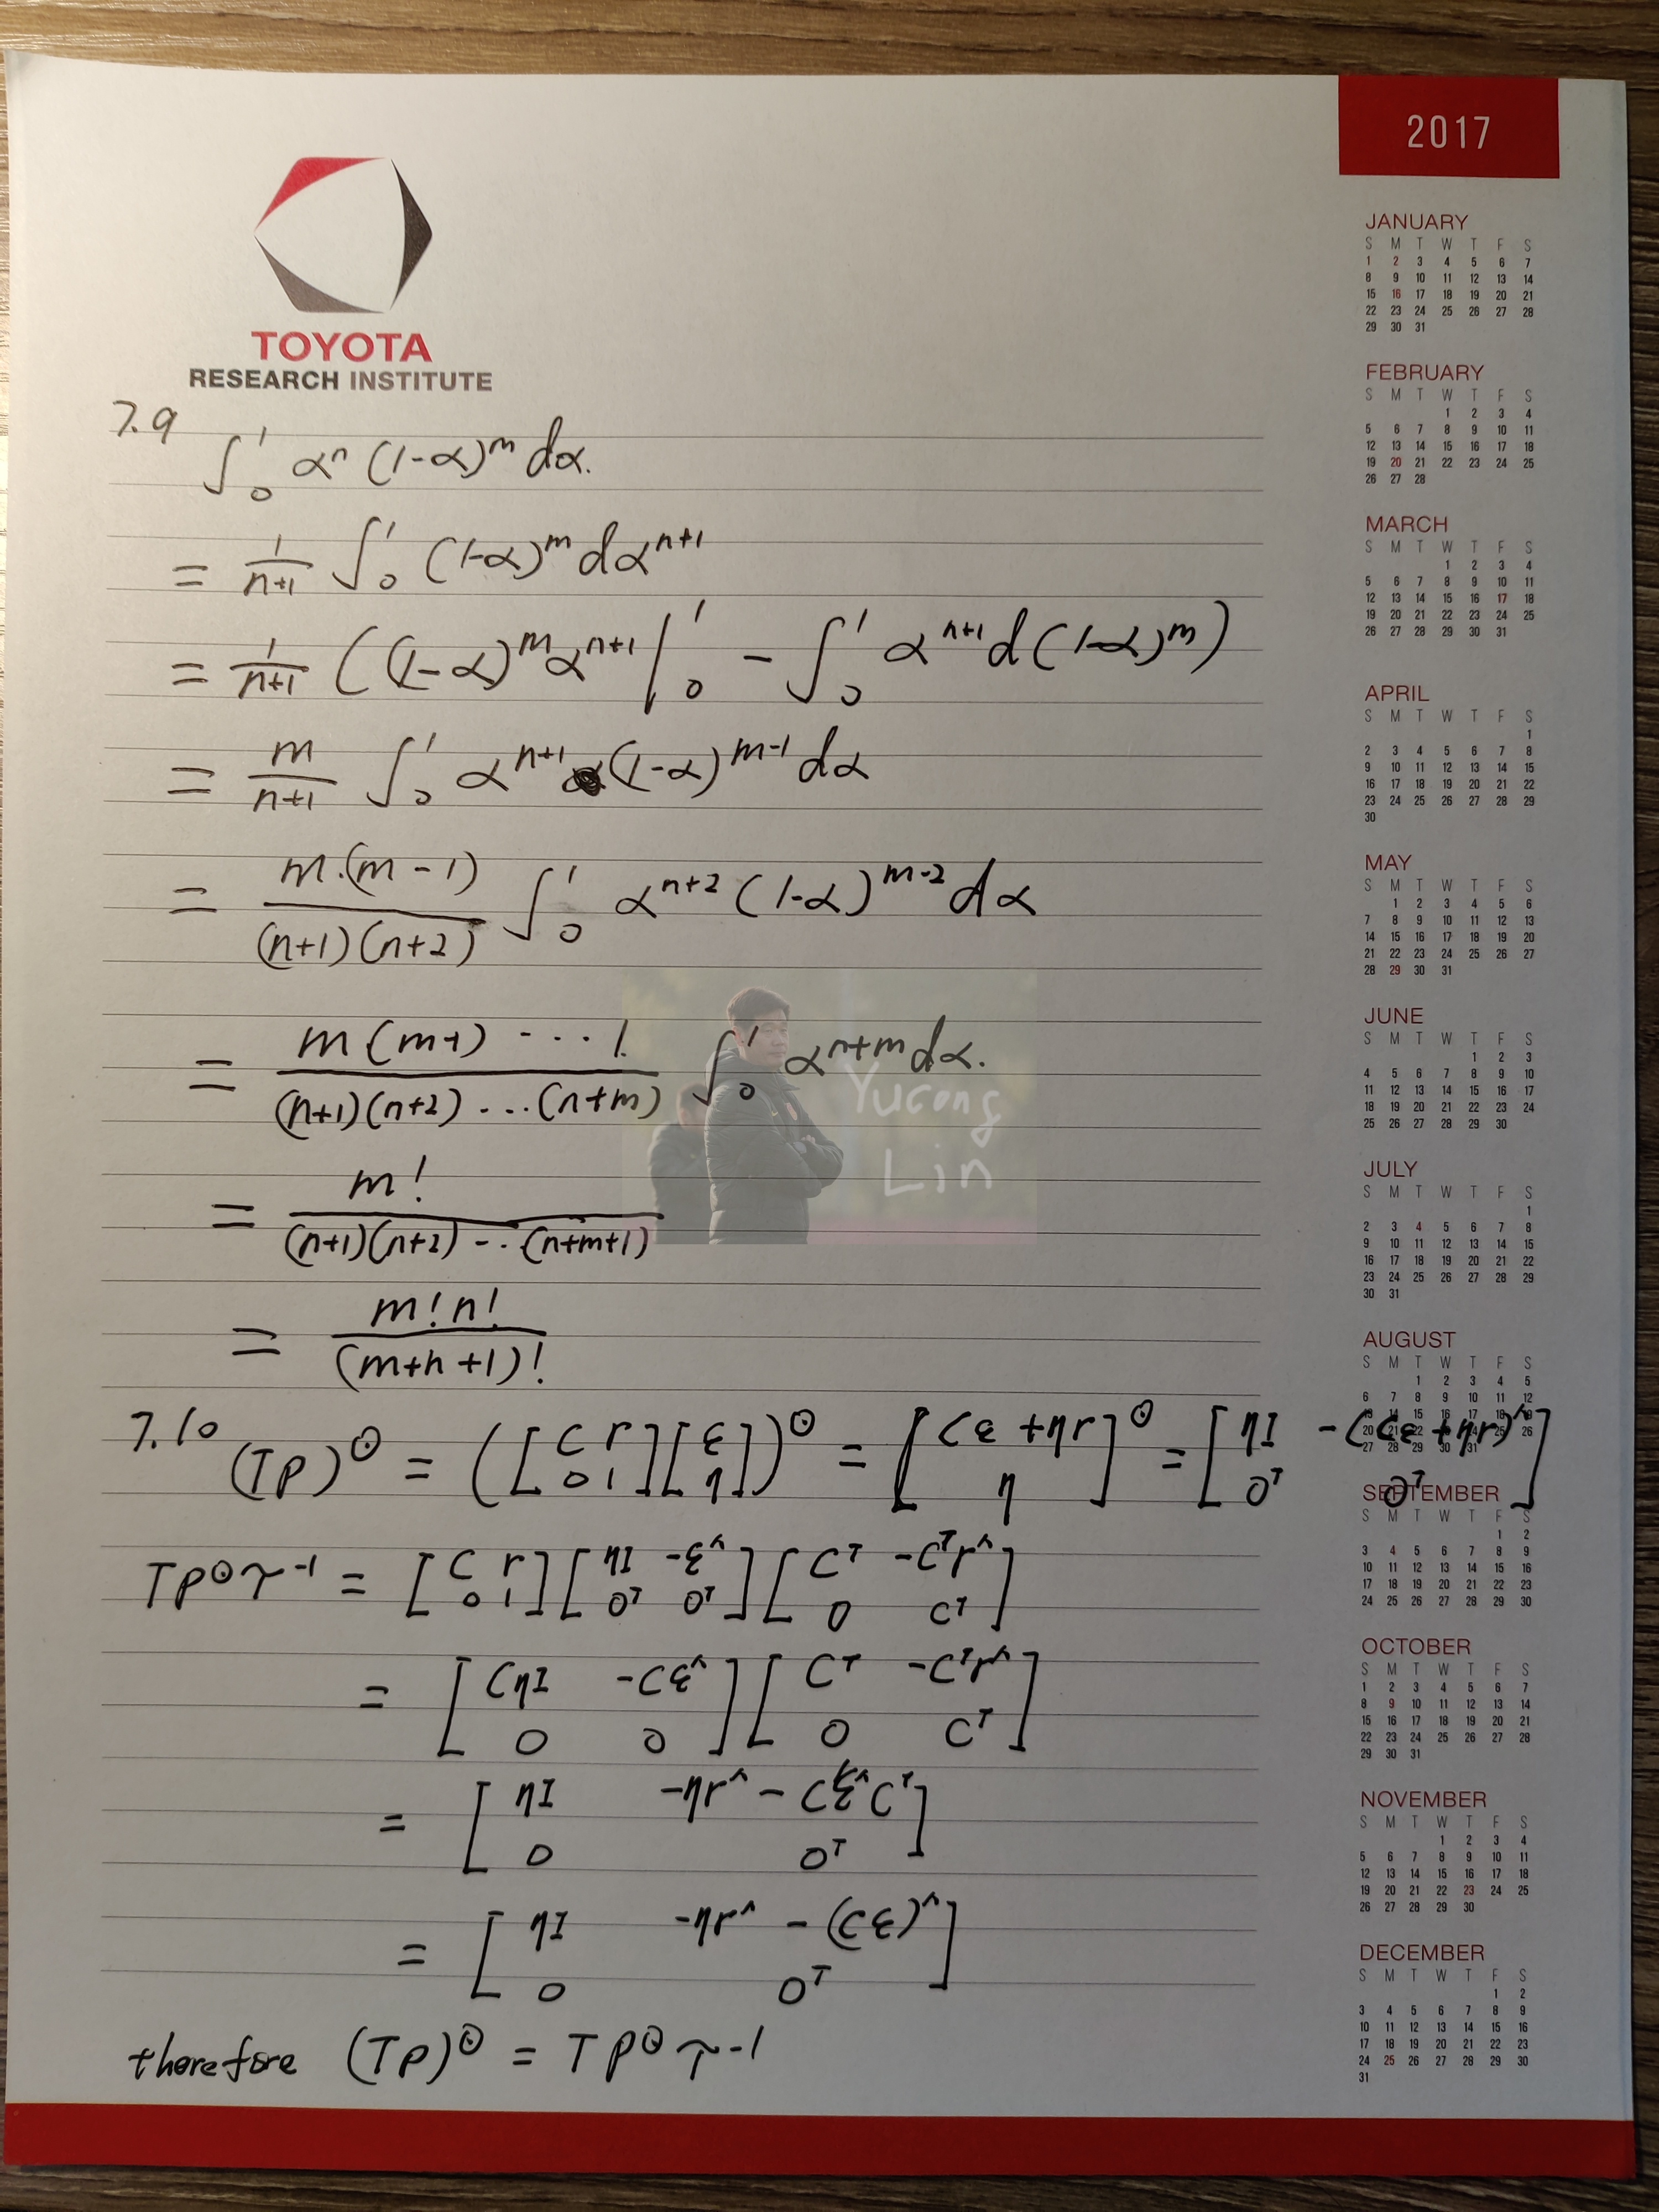 2017
TOYOTA
RESEARCH INSTITUTE
7.9
∫₀¹ αⁿ (1-α)ᵐ dα.
= 1/(n+1) ∫₀¹ (1-α)ᵐ dαⁿ⁺¹
= 1/(n+1) ( (1-α)ᵐ αⁿ⁺¹ |₀¹ - ∫₀¹ αⁿ⁺¹ d(1-α)ᵐ )
= m/(n+1) ∫₀¹ αⁿ⁺¹ (1-α)ᵐ⁻¹ dα
= m·(m-1) / (n+1)(n+2) ∫₀¹ αⁿ⁺² (1-α)ᵐ⁻² dα
= m(m+1) ··· 1. / (n+1)(n+2) ... (n+m) ∫₀¹ αⁿ⁺ᵐ dα.
Yucong
Lin
= m! / (n+1)(n+2) ... (n+m+1)
= m! n! / (m+n+1)!
7.10 (Tp)^⊙ = ([C r; 0 1][ε; η])^⊙ = [Cε + ηr; η]^⊙ = [ηI -(Cε + ηr)^∧; 0ᵀ 0ᵀ]
Tp^⊙ 𝒯⁻¹ = [C r; 0 1][ηI -ε^∧; 0ᵀ 0ᵀ][Cᵀ -Cᵀr^∧; 0 Cᵀ]
= [CηI -Cε^∧; 0 0][Cᵀ -Cᵀr^∧; 0 Cᵀ]
= [ηI -ηr^∧ - Cε^∧Cᵀ; 0 0ᵀ]
= [ηI -ηr^∧ - (Cε)^∧; 0 0ᵀ]
therefore (Tp)^⊙ = Tp^⊙ 𝒯⁻¹
JANUARY
S M T W T F S
1 2 3 4 5 6 7
8 9 10 11 12 13 14
15 16 17 18 19 20 21
22 23 24 25 26 27 28
29 30 31
FEBRUARY
S M T W T F S
1 2 3 4
5 6 7 8 9 10 11
12 13 14 15 16 17 18
19 20 21 22 23 24 25
26 27 28
MARCH
S M T W T F S
1 2 3 4
5 6 7 8 9 10 11
12 13 14 15 16 17 18
19 20 21 22 23 24 25
26 27 28 29 30 31
APRIL
S M T W T F S
1
2 3 4 5 6 7 8
9 10 11 12 13 14 15
16 17 18 19 20 21 22
23 24 25 26 27 28 29
30
MAY
S M T W T F S
1 2 3 4 5 6
7 8 9 10 11 12 13
14 15 16 17 18 19 20
21 22 23 24 25 26 27
28 29 30 31
JUNE
S M T W T F S
1 2 3
4 5 6 7 8 9 10
11 12 13 14 15 16 17
18 19 20 21 22 23 24
25 26 27 28 29 30
JULY
S M T W T F S
1
2 3 4 5 6 7 8
9 10 11 12 13 14 15
16 17 18 19 20 21 22
23 24 25 26 27 28 29
30 31
AUGUST
S M T W T F S
1 2 3 4 5
6 7 8 9 10 11 12
13 14 15 16 17 18 19
20 21 22 23 24 25 26
27 28 29 30 31
SEPTEMBER
S M T W T F S
1 2
3 4 5 6 7 8 9
10 11 12 13 14 15 16
17 18 19 20 21 22 23
24 25 26 27 28 29 30
OCTOBER
S M T W T F S
1 2 3 4 5 6 7
8 9 10 11 12 13 14
15 16 17 18 19 20 21
22 23 24 25 26 27 28
29 30 31
NOVEMBER
S M T W T F S
1 2 3 4
5 6 7 8 9 10 11
12 13 14 15 16 17 18
19 20 21 22 23 24 25
26 27 28 29 30
DECEMBER
S M T W T F S
1 2
3 4 5 6 7 8 9
10 11 12 13 14 15 16
17 18 19 20 21 22 23
24 25 26 27 28 29 30
31